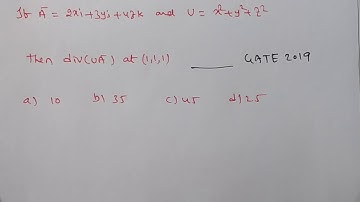 If Ā = 2xi+3yj+4zk and U = x²+y²+z²
then div(UĀ) at (1,1,1) ______ GATE 2019
a) 10 b) 35 c) 45 d) 25